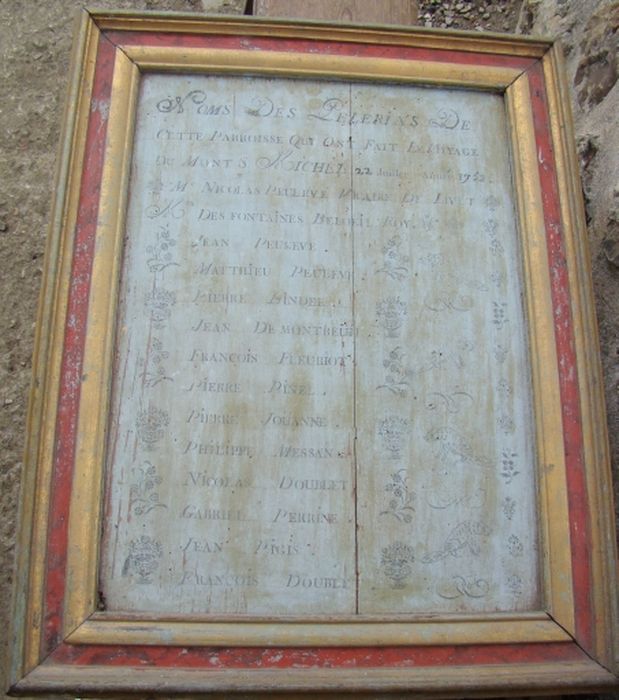 Noms Des Pelerins De
Cette Parroisse Qui Ont Fait Le Voyage
Du Mont S Michel 22 Juillet
Mr Nicolas Peuleve Vicaire De Livet
Mr Des Fontaines Beloeil Roy
Jean Peuleve
Matthieu Peuleve
Pierre
Jean De Montreuil
François Fleuriot
Pierre Pinel
Pierre Jouanne
Philippe Messan
Nicolas Doublet
Gabriel Perrine
Jean Pigis
François Doublet